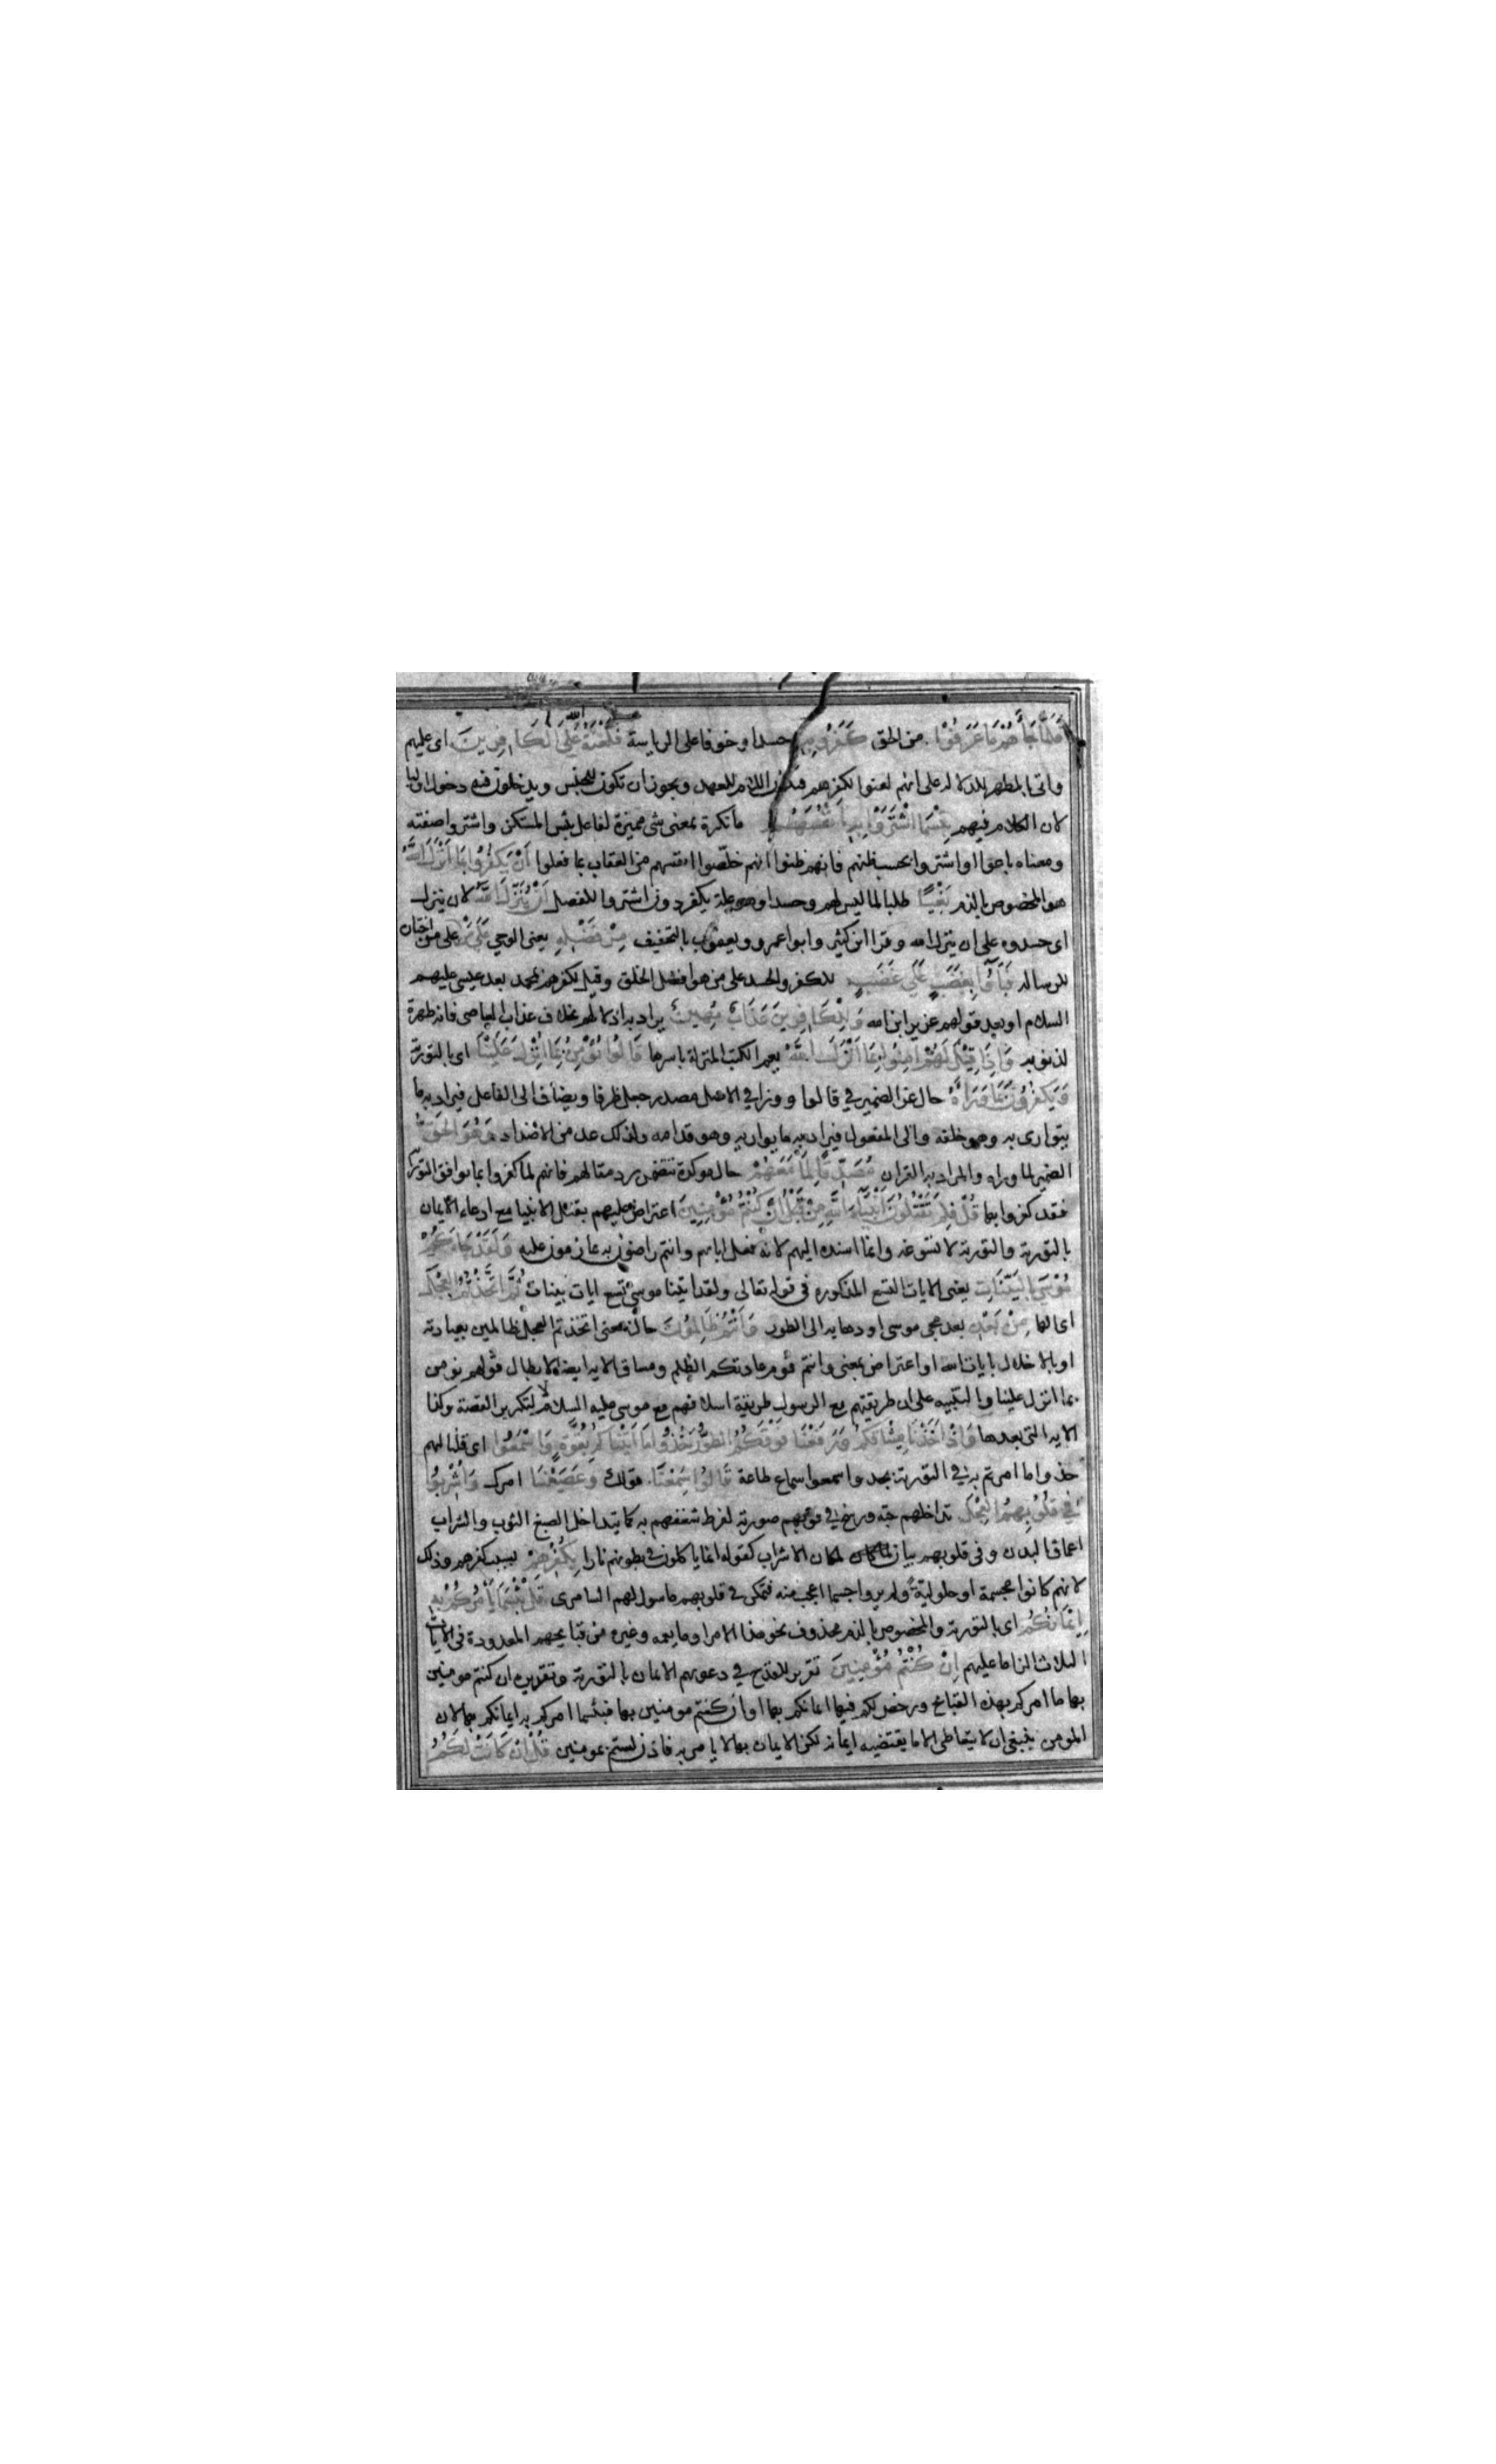 فَلَمَّا جَاءَهُمْ مَا عَرَفُوا من الحق كَفَرُوا بِهِ حسدا وخوفا على الرياسة فَلَعْنَةُ اللَّهِ عَلَى الْكَافِرِينَ اى عليهم
واتى بالمظهر للدلاله على انهم لعنوا لكفرهم فتكون اللام للعهد ويجوز ان تكون للجنس ويدخلون فيه دخولا اوليا
لان الكلام فيهم بِئْسَمَا اشْتَرَوْا بِهِ أَنْفُسَهُمْ ما نكرة بمعنى شى مميزة لفاعل بئس المستكن واشتروا صفته
ومعناه باعوا او اشتروا بحسب ظنهم فانهم ظنوا انهم خلّصوا انفسهم من العقاب بما فعلوا أَنْ يَكْفُرُوا بِمَا أَنْزَلَ اللَّهُ
هو المخصوص بالذم بَغْيًا طلبا لما ليس لهم وحسدا وهو علة يكفروا دون اشتروا للفصل أَنْ يُنَزِّلَ اللَّهُ لان ينزل
اى حسدوه على ان ينزل الله وقرا ابن كثير وابو عمرو ويعقوب بالتخفيف مِنْ فَضْلِهِ يعنى الوحي عَلَى على من اختان
للرساله فَبَاءُوا بِغَضَبٍ عَلَى غَضَبٍ للكفر والحسد على من هو افضل الخلق وقيل لكفرهم بمحمد بعد عيسى عليهم
السلام او بعد قولهم عزير ابن الله وَلِلْكَافِرِينَ عَذَابٌ مُهِينٌ يراد به اذلالهم بخلاف عذاب العاصى فانه طهرة
لذنوبه وَإِذَا قِيلَ لَهُمْ آمِنُوا بِمَا أَنْزَلَ اللَّهُ يعم الكتب المنزلة باسرها قَالُوا نُؤْمِنُ بِمَا أُنْزِلَ عَلَيْنَا اى بالتورية
وَيَكْفُرُونَ بِمَا وَرَاءَهُ حال عن الضمير في قالوا وورا في الاصل مصدر جعل ظرفا ويضاف الى الفاعل فيراد به ما
يتوارى به وهو خلفه والى المفعول فيراد به ما يواريه وهو قدامه ولذلك عد من الاضداد وَهُوَ الْحَقُّ
الضمير لما وراه والمراد به القران مُصَدِّقًا لِمَا مَعَهُمْ حال موكدة تتضمن رد مقالهم فانهم لما كفروا بما يوافق التورية
فقد كفروا بها قُلْ فَلِمَ تَقْتُلُونَ أَنْبِيَاءَ اللَّهِ مِنْ قَبْلُ إِنْ كُنْتُمْ مُؤْمِنِينَ اعتراض عليهم بقتل الانبيا مع ادعاء الايمان
بالتورية والتورية لا تسوغه وانما اسنده اليهم لانه فعل ابائهم وانتم راضون به عازمون عليه وَلَقَدْ جَاءَكُمْ
مُوسَى بِالْبَيِّنَاتِ يعنى الايات التسع المذكوره في قوله تعالى ولقد اتينا موسى تسع ايات بينات ثُمَّ اتَّخَذْتُمُ الْعِجْلَ
اى الها مِنْ بَعْدِهِ بعد مجى موسى او ذهابه الى الطور وَأَنْتُمْ ظَالِمُونَ حال بمعنى اتخذتم العجل ظالمين بعبادته
او بالاخلال بايات الله او اعتراض بمعنى وانتم قوم عادتكم الظلم ومساق الايه ايضا لابطال قولهم نومن
بما انزل علينا والتنبيه على ان طريقتهم مع الرسول طريقة اسلافهم مع موسى عليه السلام لا لتكرير القصة وكذا
الايه التى بعدها وَإِذْ أَخَذْنَا مِيثَاقَكُمْ وَرَفَعْنَا فَوْقَكُمُ الطُّورَ خُذُوا مَا آتَيْنَاكُمْ بِقُوَّةٍ وَاسْمَعُوا اى قلنا لهم
خذوا ما امرتم به في التورية بجد واسمعوا سماع طاعة قَالُوا سَمِعْنَا قولك وَعَصَيْنَا امرك وَأُشْرِبُوا
فِي قُلُوبِهِمُ الْعِجْلَ تداخلهم حبه ورسخ في قلوبهم صورته لفرط شغفهم به كما يتداخل الصبغ الثوب والشراب
اعماق البدن وفى قلوبهم بيان لمكان الاشراب كقوله انما ياكلون في بطونهم نارا بِكُفْرِهِمْ بسبب كفرهم وذلك
لانهم كانوا مجسمة او حلولية ولم يروا جسما اعجب منه فتمكن في قلوبهم ما سول لهم السامرى قُلْ بِئْسَمَا يَأْمُرُكُمْ بِهِ
إِيمَانُكُمْ اى بالتورية والمخصوص بالذم محذوف نحو هذا الامر او ما يعمه وغيره من قبايحهم المعدودة في الايات
الثلاث الزاما عليهم إِنْ كُنْتُمْ مُؤْمِنِينَ تقرير للقدح في دعويهم الايمان بالتورية وتقديره ان كنتم مومنين
بها ما امركم بهذه القبايح ورخص لكم فيها ايمانكم بها او ان كنتم مومنين بها فبئسما امركم به ايمانكم بها لان
المومن ينبغى ان لا يتعاطى الا ما يقتضيه ايمانه لكن الايمان بها لا يامر به فاذن لستم بمومنين قُلْ إِنْ كَانَتْ لَكُمُ